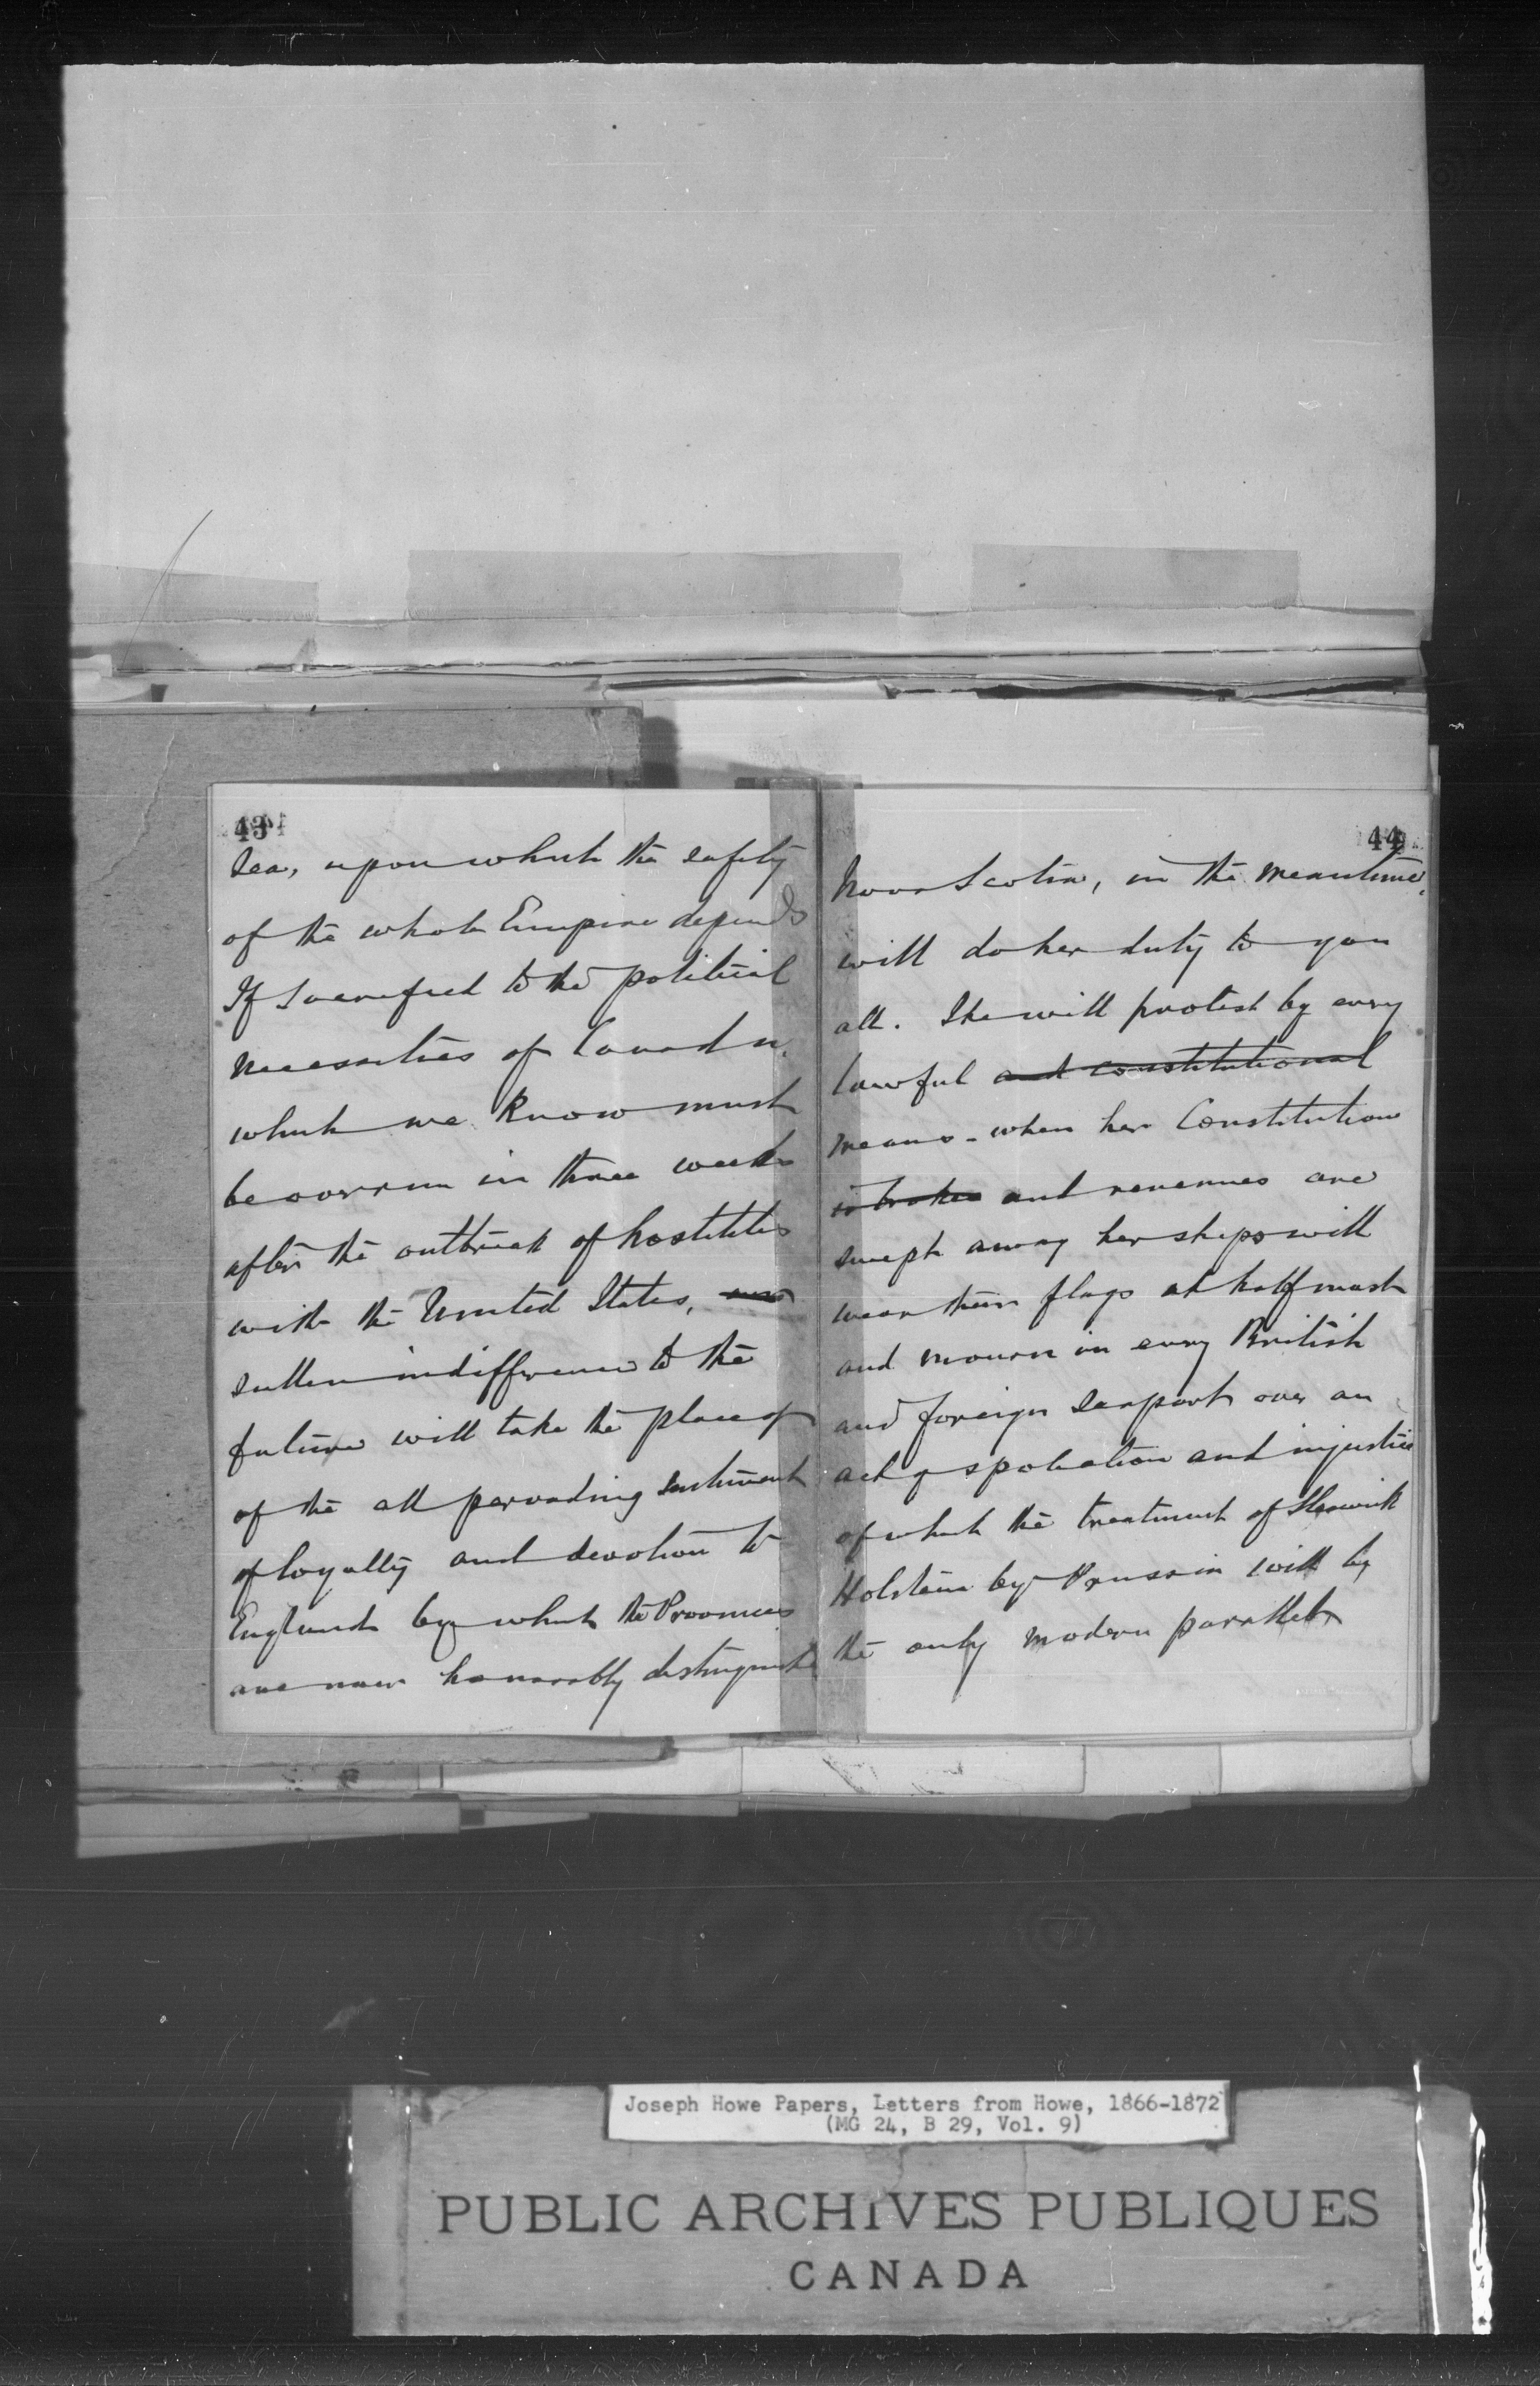 43
Sea, upon which the safety
of the whole Empire depends
If sacrificed to the political
necessities of Canada,
which we know must
be overrun in three weeks
after the outbreak of hostilities
with the United States,
sullen indifference to the
future will take the place of
of the all pervading sentiment
of loyalty and devotion to
England by which the Provinces
are now honorably distinguished
44
Nova Scotia, in the meantime,
will do her duty to you
all. She will protest by every
lawful and constitutional
means - when her Constitution
is broken and revenues are
swept away her ships will
wear their flags at half mast
and mourn in every British
and foreign seaport over an
act of spoliation and injustice
of which the treatment of Sleswick
Holstein by Prussia will be
the only modern parallel
Joseph Howe Papers, Letters from Howe, 1866-1872
(MG 24, B 29, Vol. 9)
PUBLIC ARCHIVES PUBLIQUES
CANADA